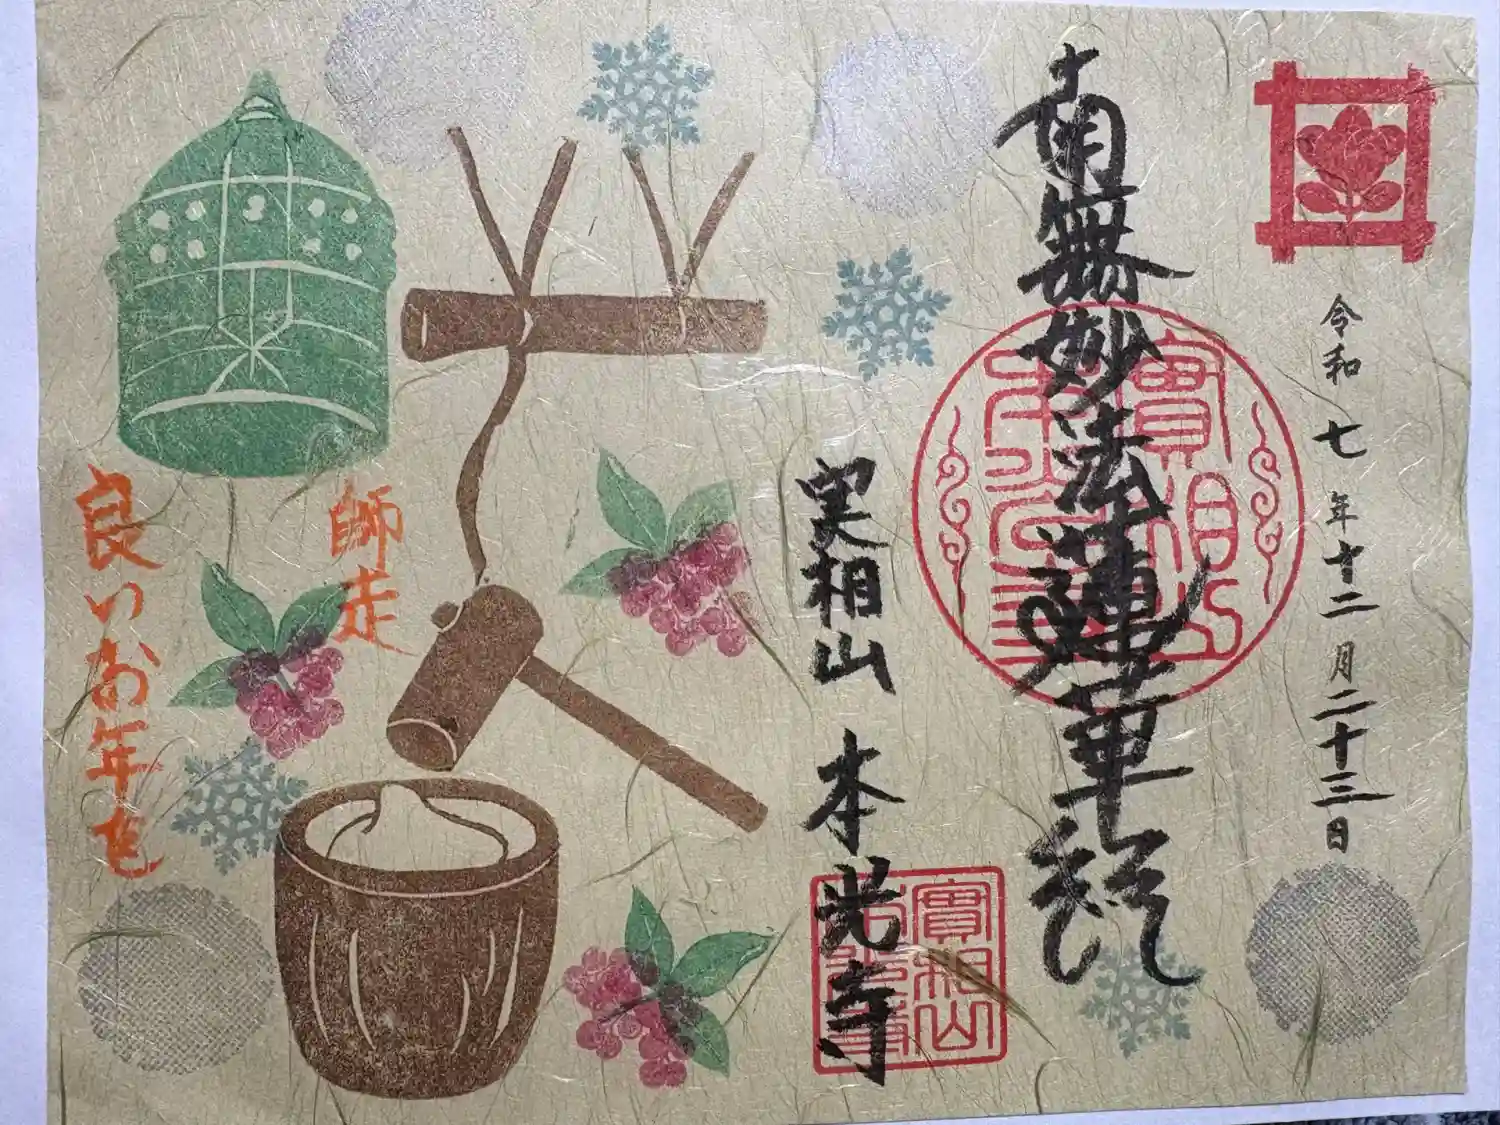 令和七年十二月二十三日
南無妙法蓮華経
実相山 本光寺
師走
良いお年を
實相山
本光寺
實相山